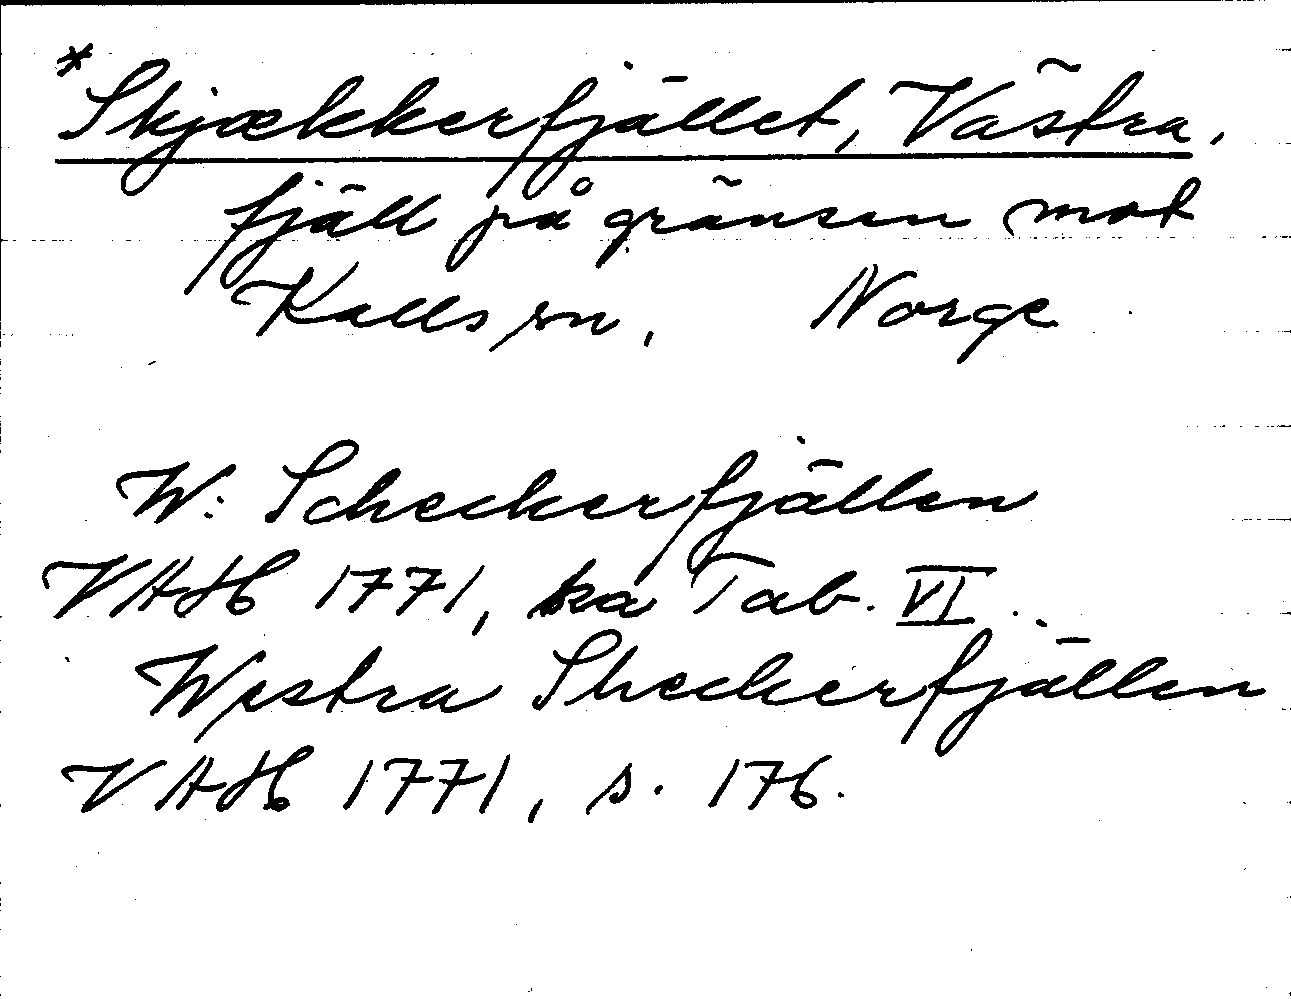 *Skjækkerfjället, Västra,
fjäll på gränsen mot
Kalls sn, Norge
W: Scheckerfjällen
VAH 1771, ka Tab. VI.
Westra Sheckerfjällen
VAH 1771, s. 176.